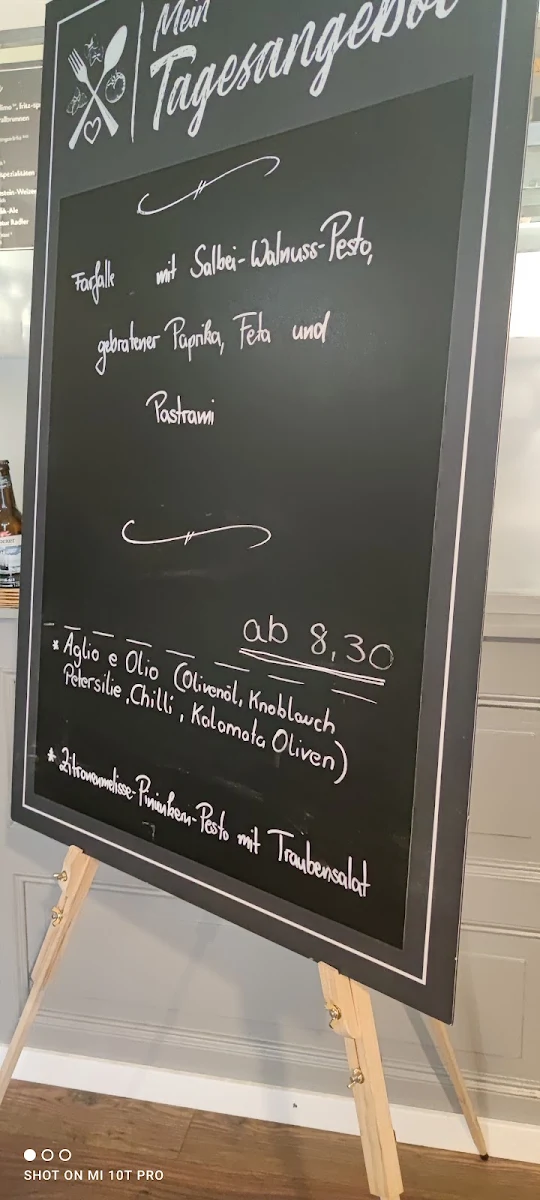 Mein
Tagesangebot
Farfalle mit Salbei-Walnuss-Pesto,
gebratener Paprika, Feta und
Pastrami
ab 8,30
* Aglio e Olio (Olivenöl, Knoblauch
Petersilie, Chilli, Kalamata Oliven)
* Zitronenmelisse-Pinienken-Pesto mit Traubensalat
SHOT ON MI 10T PRO